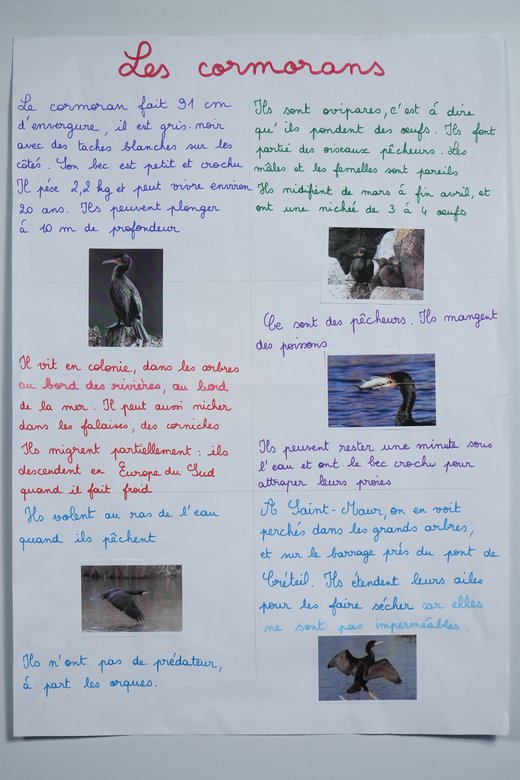 Les cormorans
Le cormoran fait 91 cm
d'envergure, il est gris-noir
avec des taches blanches sur les
côtés. Son bec est petit et crochu
Il pèse 2,2 kg et peut vivre environ
20 ans. Ils peuvent plonger
à 10 m de profondeur
Il vit en colonie, dans les arbres
au bord des rivières, au bord
de la mer. Il peut aussi nicher
dans les falaises, des corniches
Ils migrent partiellement : ils
descendent en Europe du Sud
quand il fait froid
Ils volent au ras de l'eau
quand ils pêchent
Ils n'ont pas de prédateur,
à part les orques.
Ils sont ovipares, c'est à dire
qu'ils pondent des oeufs. Ils font
partie des oiseaux pêcheurs. Les
mâles et les femelles sont pareils
Ils nidifient de mars à fin avril, et
ont une nichée de 3 à 4 oeufs
Ce sont des pêcheurs. Ils mangent
des poissons
Ils peuvent rester une minute sous
l'eau et ont le bec crochu pour
attraper leurs proies
A Saint-Maur, on en voit
perchés dans les grands arbres,
et sur le barrage près du pont de
Créteil. Ils étendent leurs ailes
pour les faire sécher car elles
ne sont pas imperméables.